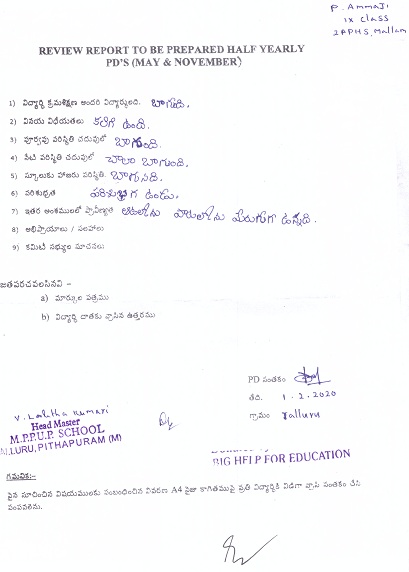 P. Ammaji
IX class
ZPHS, Mallam
REVIEW REPORT TO BE PREPARED HALF YEARLY
PD'S (MAY & NOVEMBER)
1) విద్యార్థి క్రమశిక్షణ అందరి విద్యార్థులది. బాగుది.
2) వినయ విధేయతలు కలిగి ఉంది.
3) పూర్వపు పరిస్థితి చదువులో బాగుంది.
4) నేటి పరిస్థితి చదువులో చాలా బాగుంది.
5) స్కూలుకు హాజరు పరిస్థితి. బాగునది.
6) పరిశుభ్రత పరిశుభ్రంగ ఉండు.
7) ఇతర అంశములలో ప్రావీణ్యత ఆటలోను పాటలోను మెరుగుగ ఉన్నది.
8) అభిప్రాయాలు / సలహాలు
9) కమిటీ సభ్యుల సూచనలు
జతపరచవలసినవి –
a) మార్కుల పత్రము
b) విద్యార్థి దాతకు వ్రాసిన ఉత్తరము
PD సంతకం
తేది. 1.2.2020
గ్రామం
V. Lalitha Kumari
Head Master
M.P.P.U.P. SCHOOL
LURU, PITHAPURAM (M)
BIG HELP FOR EDUCATION
గమనిక:–
పైన సూచించిన విషయములకు సంబంధించిన వివరణ A4 సైజు కాగితముపై ప్రతి విద్యార్థికి విడిగా వ్రాసి సంతకం చేసి
పంపవలెను.